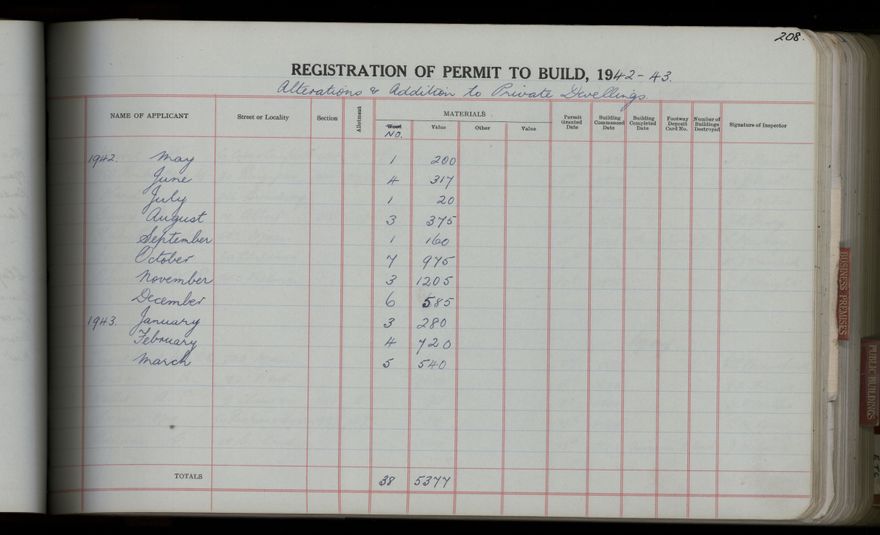 208.
REGISTRATION OF PERMIT TO BUILD, 1942-43.
Alterations & Addition to Private Dwellings.
NAME OF APPLICANT Street or Locality Section Allotment MATERIALS Permit Granted Date Building Commenced Date Building Completed Date Footway Deposit Card No. Number of Buildings Destroyed Signature of Inspector
NO. Value Other Value
1942. May 1 200
June 4 317
July 1 20
August 3 375
September 1 160
October 7 975
November 3 1205
December 6 585
1943. January 3 280
February 4 720
March 5 540
TOTALS 38 5377
BUSINESS PREMISES
PUBLIC BUILDINGS